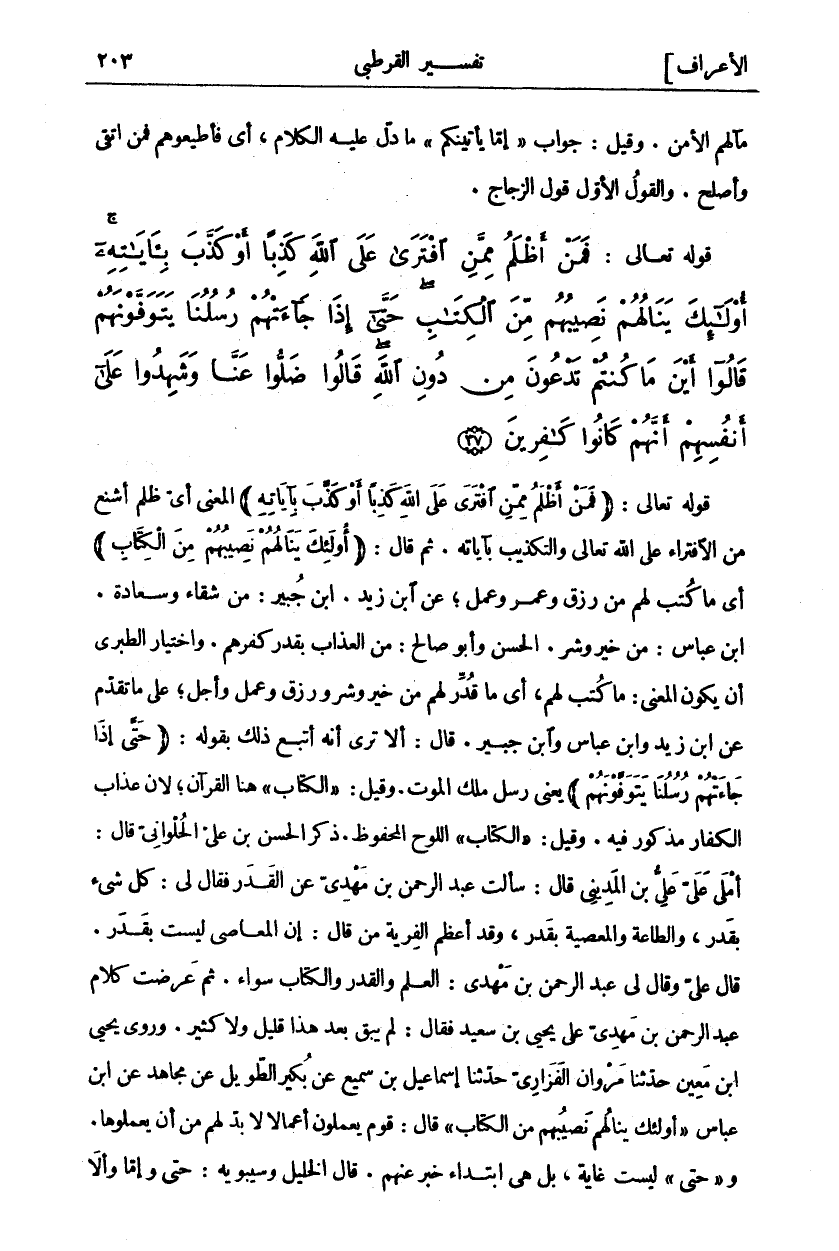 الأعراف] تفسير القرطبي ٢٠٣
مآلهم الأمن . وقيل : جواب « إمّا يأتينكم » ما دلّ عليه الكلام ، أى فأطيعوهم فمن اتقى
وأصلح . والقولُ الأوّل قول الزجاج .
قوله تعالى : فَمَنْ أَظْلَمُ مِمَّنِ ٱفْتَرَىٰ عَلَى ٱللَّهِ كَذِبًا أَوْ كَذَّبَ بِـَٔايَـٰتِهِۦٓ ۚ
أُو۟لَـٰٓئِكَ يَنَالُهُمْ نَصِيبُهُم مِّنَ ٱلْكِتَـٰبِ ۖ حَتَّىٰٓ إِذَا جَآءَتْهُمْ رُسُلُنَا يَتَوَفَّوْنَهُمْ
قَالُوٓا أَيْنَ مَا كُنتُمْ تَدْعُونَ مِن دُونِ ٱللَّهِ ۖ قَالُوا ضَلُّوا عَنَّا وَشَهِدُوا عَلَىٰٓ
أَنفُسِهِمْ أَنَّهُمْ كَانُوا كَـٰفِرِينَ ﴿٣٧﴾
قوله تعالى : ﴿ فَمَنْ أَظْلَمُ مِمَّنِ ٱفْتَرَى عَلَى اللهِ كَذِبًا أَوْ كَذَّبَ بِآيَاتِهِ ﴾ المعنى أىّ ظلم أشنع
من الافتراء على الله تعالى والتكذيب بآياته . ثم قال : ﴿ أُولَئِكَ يَنَالُهُمْ نَصِيبُهُمْ مِنَ الْكِتَابِ ﴾
أى ما كُتب لهم من رزق وعمر وعمل ؛ عن ٱبن زيد . ابن جُبير : من شقاء وسعادة .
ابن عباس : من خير وشر . الحسن وأبو صالح : من العذاب بقدر كفرهم . واختيار الطبرى
أن يكون المعنى : ما كُتب لهم، أى ما قُدِّر لهم من خير وشر ورزق وعمل وأجل؛ على ما تقدّم
عن ابن زيد وابن عباس وٱبن جبير . قال : ألا ترى أنه أتبع ذلك بقوله : ﴿ حَتَّى إِذَا
جَاءَتْهُمْ رُسُلُنَا يَتَوَفَّوْنَهُمْ ﴾ يعنى رسل ملك الموت. وقيل: «الكتاب» هنا القرآن؛ لان عذاب
الكفار مذكور فيه . وقيل: «الكتاب» اللوح المحفوظ. ذكر الحسن بن علىّ الحُلْوانىّ قال :
أمْلَى عَلَىّ عَلِىُّ بن المَدِينى قال : سألت عبد الرحمن بن مَهْدىّ عن القَدَر فقال لى : كل شىء
بقَدر ، والطاعة والمعصية بقَدر ، وقد أعظم الفِرية من قال : إن المعاصى ليست بقَدَر .
قال علىّ وقال لى عبد الرحمن بن مَهْدى : العلم والقدر والكتاب سواء . ثم عَرضت كلام
عبد الرحمن بن مَهدىّ على يحيى بن سعيد فقال : لم يبق بعد هذا قليل ولا كثير . وروى يحيى
ابن مَعِين حدثنا مَرْوان الفَزارىّ حدثنا إسماعيل بن سميع عن بُكير الطّويل عن مجاهد عن ابن
عباس «أولئك ينالُهم نصيبُهم من الكتاب» قال : قوم يعملون أعمالا لا بدّ لهم من أن يعملوها.
و « حتى » ليست غاية ، بل هى ابتداء خبر عنهم . قال الخليل وسيبويه : حتى وإمّا وألَا